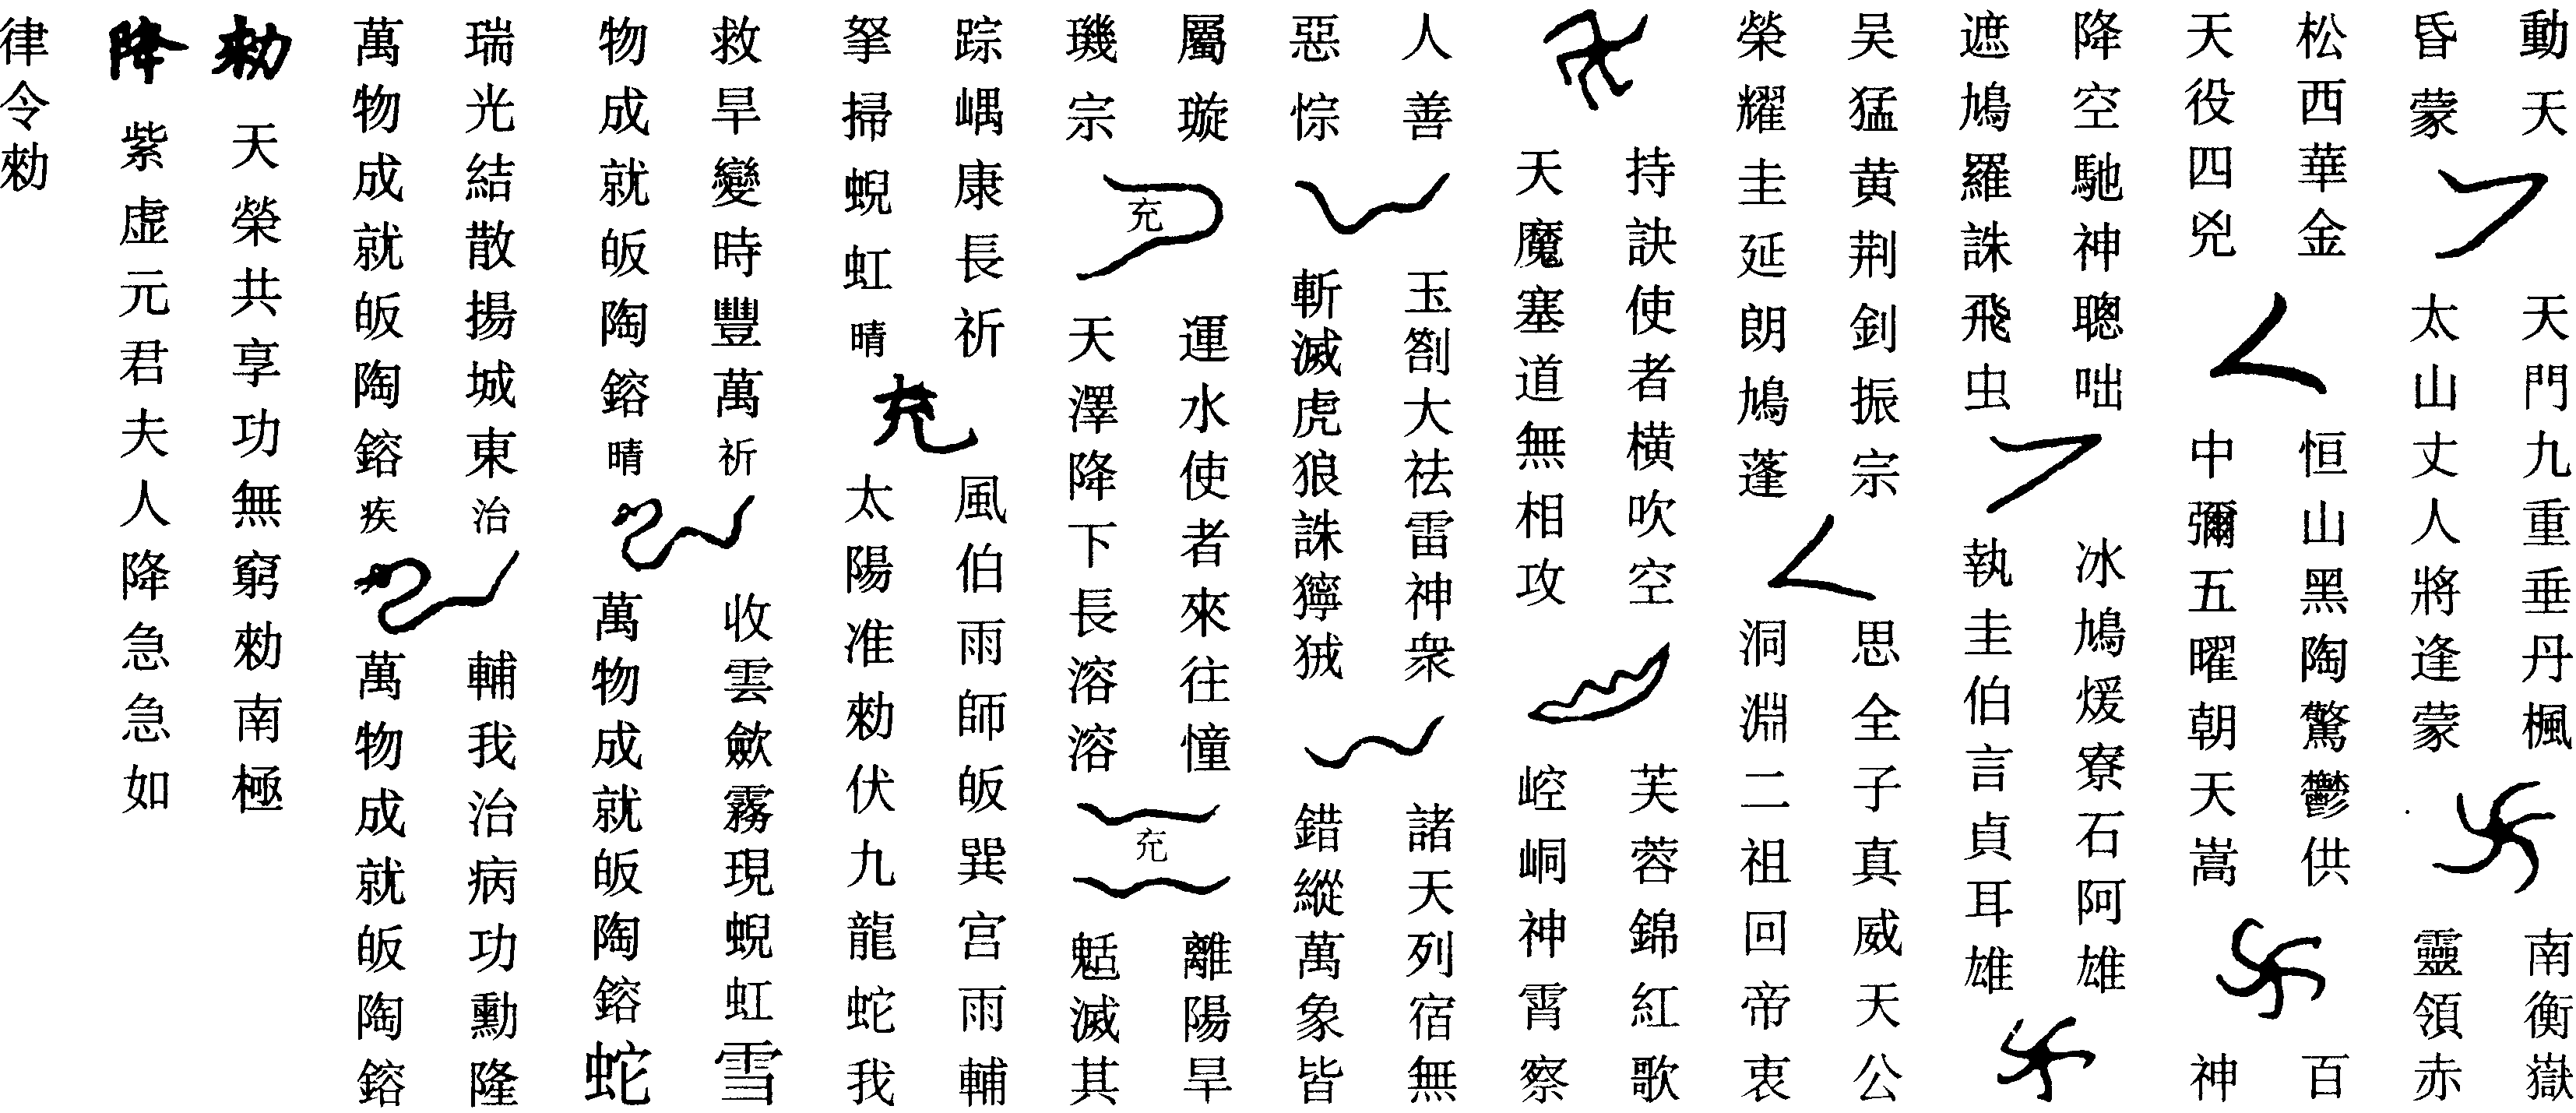 動天天門九重垂丹楓南衡嶽
昏蒙太山丈人將逢蒙靈領赤
松西華金恒山黑陶驚鬱供百
天役四兇中彌五曜朝天嵩神
降空馳神聰咄冰鳩煖寮石阿雄
遮鳩羅誅飛虫執圭伯言貞耳雄
吴猛黄荆釗振宗思全子真威天公
榮耀圭延朗鳩蓬洞淵二祖回帝衷
持訣使者横吹空芙蓉錦紅歌
天魔塞道無相攻崆峒神霄察
人善玉劄大祛雷神衆諸天列宿無
惡悰斬滅虎狼誅獰狨錯縱萬象皆
屬璇運水使者來往憧離陽旱
璣宗充天澤降下長溶溶充魃滅其
踪嵎康長祈風伯雨師皈巽宫雨輔
拏掃蜺虹晴充太陽准勑伏九龍蛇我
救旱變時豐萬祈收雲歛霧現蜺虹雪
物成就皈陶鎔晴萬物成就皈陶鎔蛇
瑞光結散揚城東治輔我治病功勳隆
萬物成就皈陶鎔疾萬物成就皈陶鎔
勑天榮共享功無窮勑南極
降紫虚元君夫人降急急如
律令勑